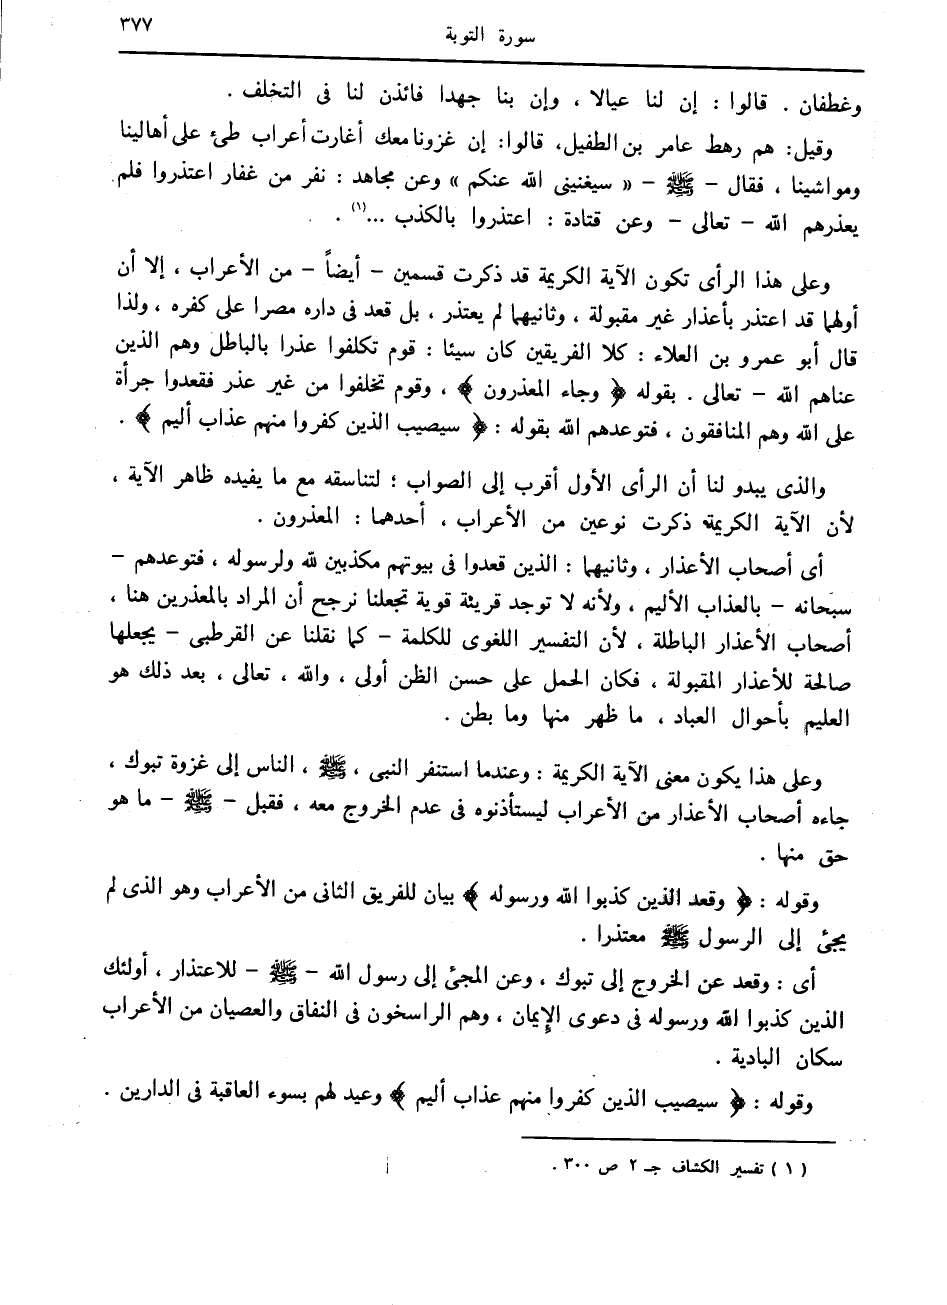 سورة التوبة ٣٧٧
وغطفان . قالوا : إن لنا عيالا ، وإن بنا جهدا فائذن لنا فى التخلف .
وقيل : هم رهط عامر بن الطفيل، قالوا: إن غزونا معك أغارت أعراب طئ على أهالينا
ومواشينا ، فقال – ﷺ – « سيغنينى الله عنكم » وعن مجاهد : نفر من غفار اعتذروا فلم
يعذرهم الله – تعالى – وعن قتادة : اعتذروا بالكذب ...(١) .
وعلى هذا الرأى تكون الآية الكريمة قد ذكرت قسمين – أيضاً – من الأعراب ، إلا أن
أولهما قد اعتذر بأعذار غير مقبولة ، وثانيهما لم يعتذر ، بل قعد فى داره مصرا على كفره ، ولذا
قال أبو عمرو بن العلاء : كلا الفريقين كان سيئا : قوم تكلفوا عذرا بالباطل وهم الذين
عناهم الله – تعالى . بقوله ﴿ وجاء المعذرون ﴾ ، وقوم تخلفوا من غير عذر فقعدوا جرأة
على الله وهم المنافقون ، فتوعدهم الله بقوله : ﴿ سيصيب الذين كفروا منهم عذاب أليم ﴾ .
والذى يبدو لنا أن الرأى الأول أقرب إلى الصواب ؛ لتناسقه مع ما يفيده ظاهر الآية ،
لأن الآية الكريمة ذكرت نوعين من الأعراب ، أحدهما : المعذرون .
أى أصحاب الأعذار ، وثانيهما : الذين قعدوا فى بيوتهم مكذبين لله ولرسوله ، فتوعدهم –
سبحانه – بالعذاب الأليم ، ولأنه لا توجد قرينة قوية تجعلنا نرجح أن المراد بالمعذرين هنا ،
أصحاب الأعذار الباطلة ، لأن التفسير اللغوى للكلمة – كما نقلنا عن القرطبى – يجعلها
صالحة للأعذار المقبولة ، فكان الحمل على حسن الظن أولى ، والله ، تعالى ، بعد ذلك هو
العليم بأحوال العباد ، ما ظهر منها وما بطن .
وعلى هذا يكون معنى الآية الكريمة : وعندما استنفر النبى ، ﷺ ، الناس إلى غزوة تبوك ،
جاءه أصحاب الأعذار من الأعراب ليستأذنوه فى عدم الخروج معه ، فقبل – ﷺ – ما هو
حق منها .
وقوله : ﴿ وقعد الذين كذبوا الله ورسوله ﴾ بيان للفريق الثانى من الأعراب وهو الذى لم
يجئ إلى الرسول ﷺ معتذرا .
أى : وقعد عن الخروج إلى تبوك ، وعن المجئ إلى رسول الله – ﷺ – للاعتذار ، أولئك
الذين كذبوا الله ورسوله فى دعوى الإيمان ، وهم الراسخون فى النفاق والعصيان من الأعراب
سكان البادية .
وقوله : ﴿ سيصيب الذين كفروا منهم عذاب أليم ﴾ وعيد لهم بسوء العاقبة فى الدارين .
(١) تفسير الكشاف جـ ٢ ص ٣٠٠ .